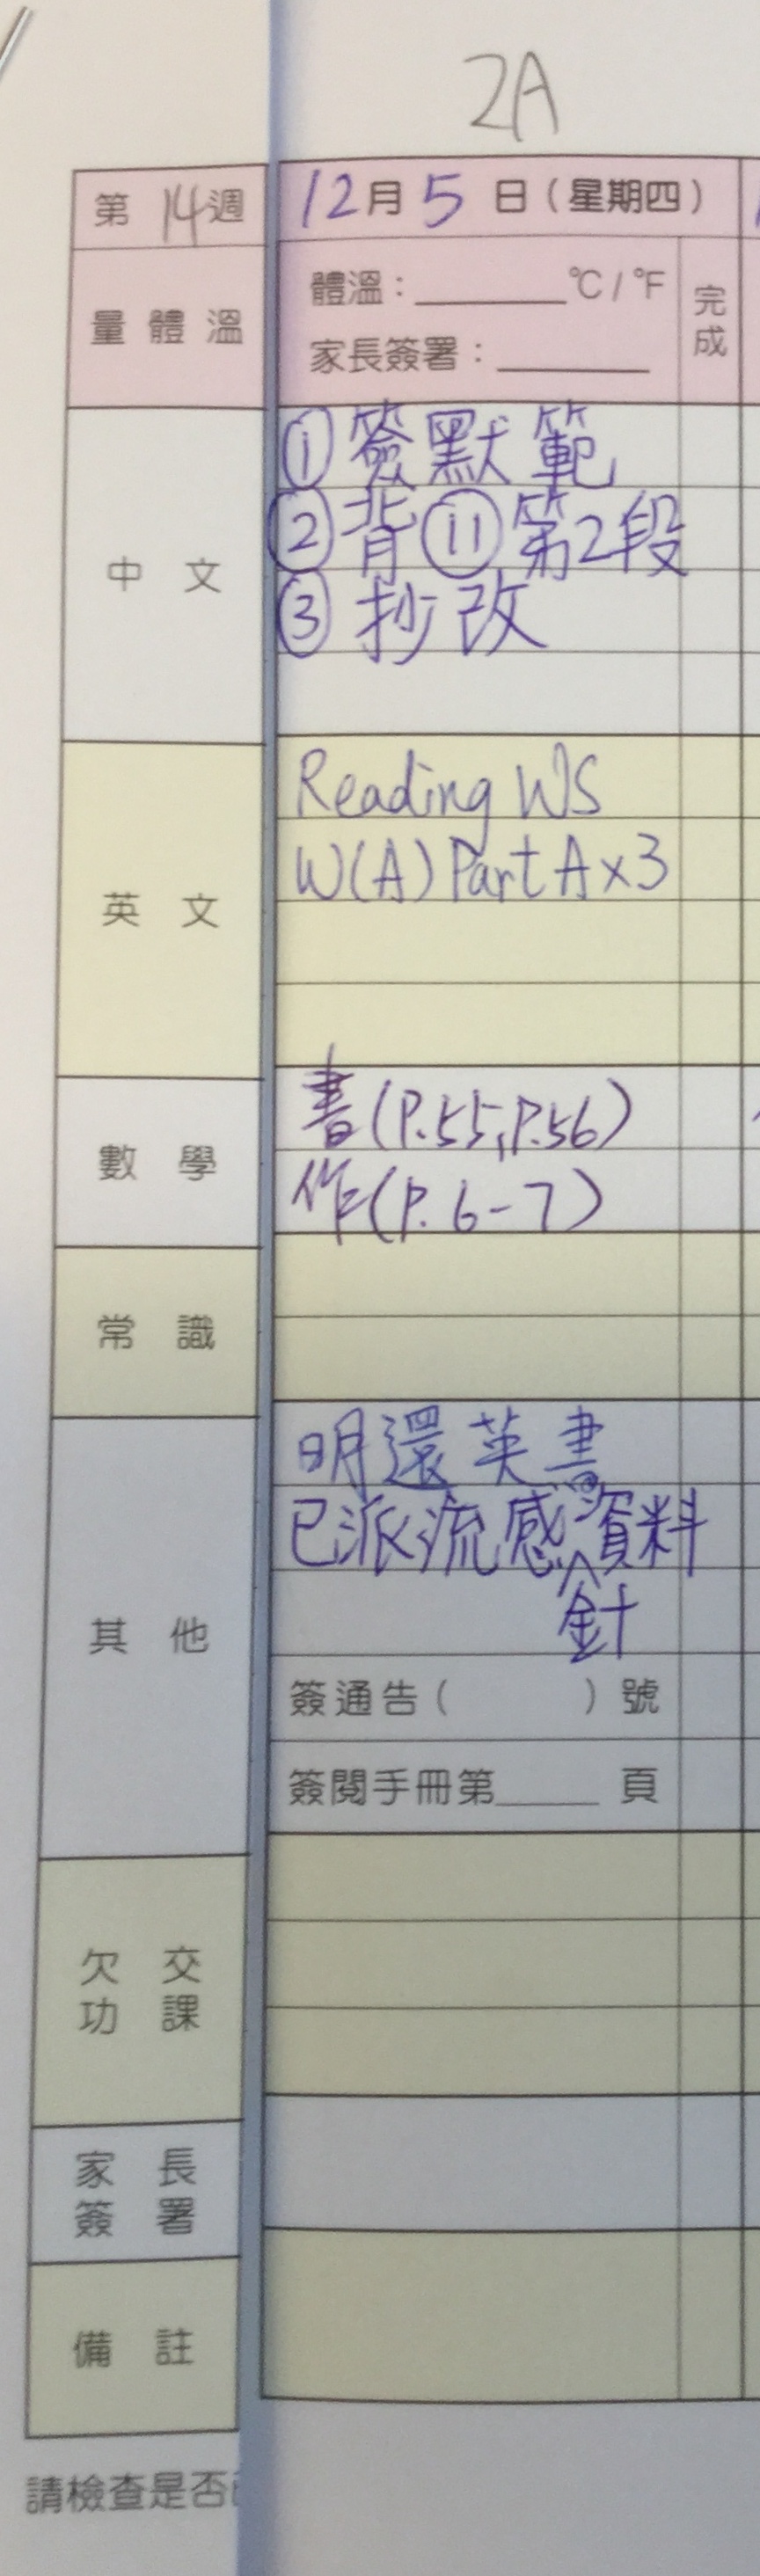 2A
第14週
12月5日（星期四）
量體溫
體溫：______°C / °F
家長簽署：______
完成
中文
① 簽默範
② 背⑪第2段
③ 抄改
英文
Reading WS
W(A) Part A x 3
數學
書(P.55, P.56)
作(P. 6-7)
常識
其他
明還英書
已派流感針資料
簽通告（　　　）號
簽閱手冊第____頁
欠交功課
家長簽署
備註
請檢查是否